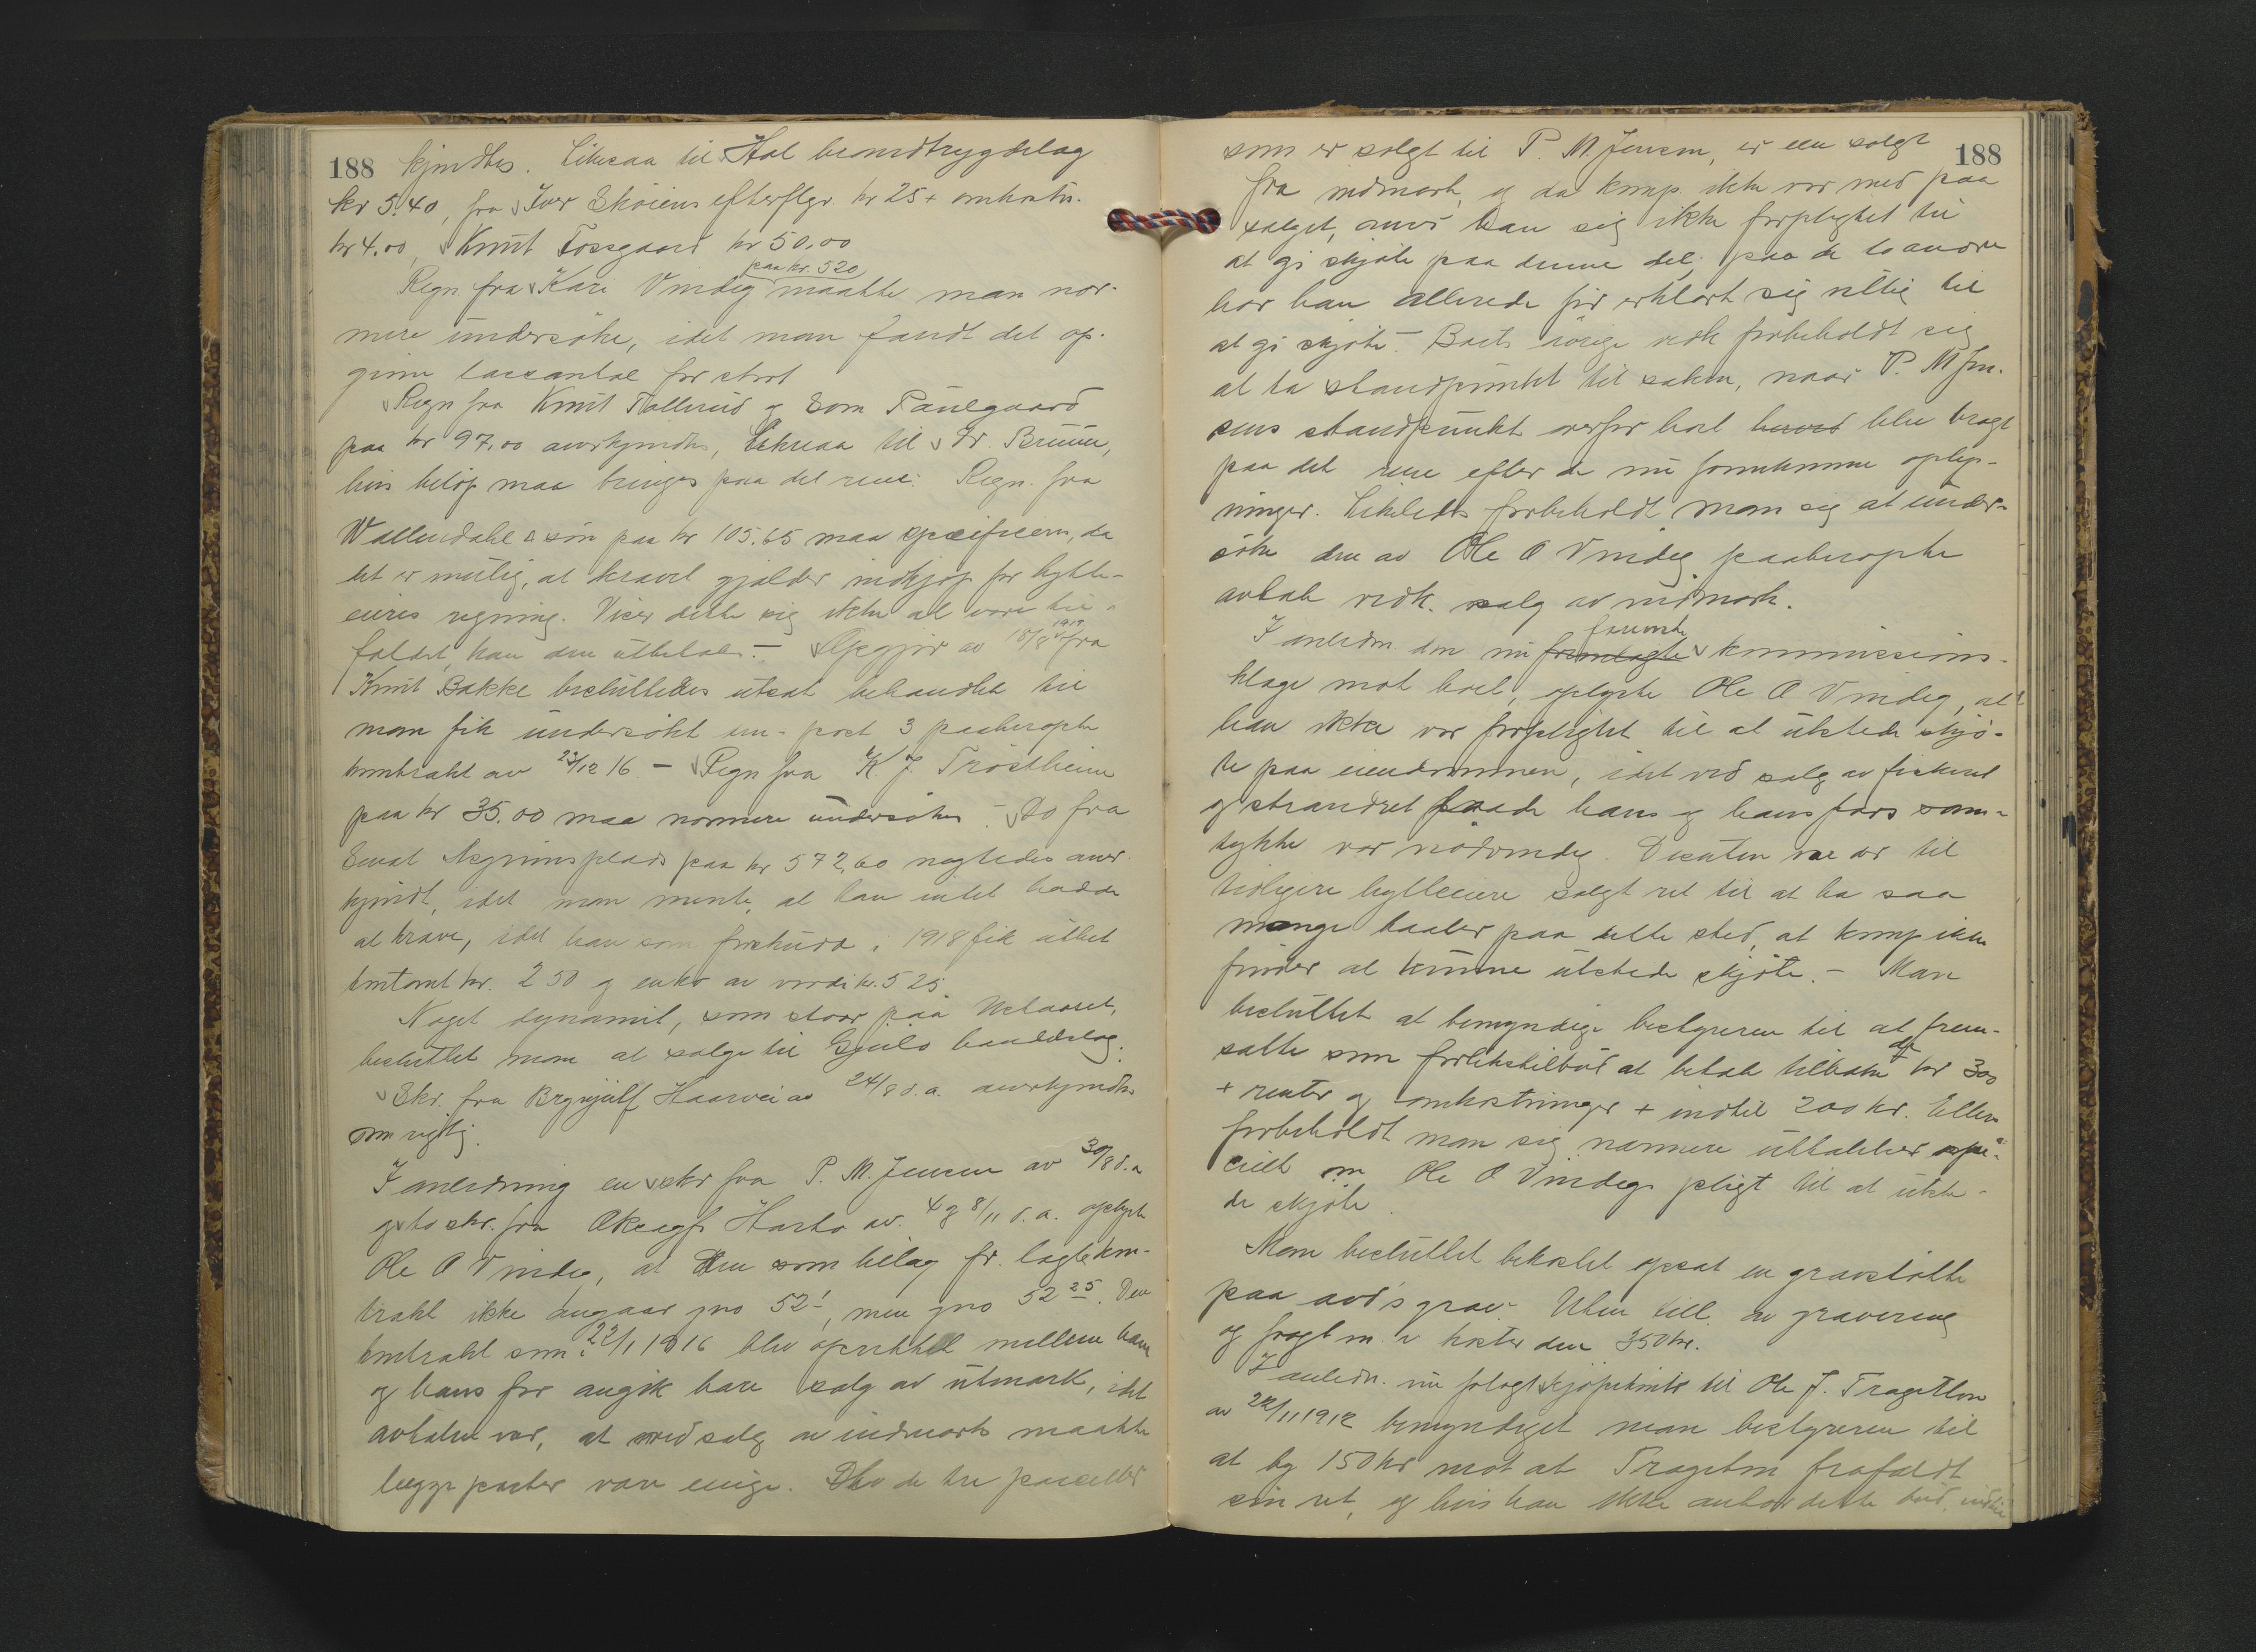 188 kjendtes. Likesaa til Hol brandtrygdelag
kr 5.40, fra Iver Skóiens efterflgr. kr 25 + omkostn.
kr 4.00, Knut Fossgaard kr 50.00
Regn. fra Kari Vindeg paa kr. 520 maatte man nær-
mere undersöke, idet man fandt det op-
givne lassantal for stort
Regn fra Knut Tollerud og Paulgaard
paa kr 97.00 anerkjendtes, likesaa til Dr. Bruun,
hvis belöp maa bringes paa det rene. Regn. fra
Wallendahl & sön paa kr 105.65 maa specificeres, da
det er mulig, at kravet gjælder indkjöp for hytte-
eieres regning. Viser dette sig ikke at være til-
faldet, kan den utbetales. - Opgjör av 18/8 1919 fra
Knut Bakke besluttedes utsat behandlet til
man fik undersökt en i post 3 paaberopte
kontrakt av 23/12 16 - Regn fra K J. Tröstheim
paa kr 35.00 maa nærmere undersökes - Do fra
Asgrimsplads paa kr 572,60 negtedes aner-
kjendt, idet man mente, at han intet hadde
at kræve, idet han som forskud i 1918 fik utbet
kontant kr. 250 og en ko av værdi kr. 525
Noget dynamit, som staar paa Ustaoset,
besluttet man at sælge til Geilo handelslag.
Skr. fra Brynjulf Haarvei av 24/8 d.a. anerkjendtes
som rigtig.
I anledning en skr fra P. M. Jensen av 30/8 d.a
og to skr. fra Oksagf. Harbo av. 4 og 8/11 d.a. oplyste
Ole O Vindeg, at den som bilag fr. lagte kon-
trakt ikke angaar gno 52/1, men gno 52 25. Den
kontrakt som i 22/1 1916 blev oprettet mellem ham
og hans far angik bare salg av utmark, idet
avtalen var, at ved salg av indmark maatte
begge parter være enige. Av de tre parceller
188
som er solgt til P. M. Jensen, er en solgt
fra indmark, og da komp. ikke var med paa
salget, anser han sig ikke forpligtet til
at gi skjöte paa denne del; paa de to andre
har han allerede för erklært sig villig til
at gi skjöte. - Boets övrige vedk forbeholdt sig
at ta standpunkt til saken, naar P. M Jen-
sens standpunkt overfor boet herved blev bragt
paa det rene efter de nu fremkomne oplys-
ninger. Likeledes forbeholdt man sig at under-
söke den av Ole O Vindeg paaberopte
avtale vedk. salg av indmark.
I anledn den nu fremlagte forenede kommissions-
klage mot boet, oplyste Ole O Vindeg, at
han ikke var forpligtet til at utstede skjö-
te paa eiendommen, idet ved salg av fiskeret
og strandret baade hans og hans fars sam-
tykke var nödvendig. Desuten var der til
tidligere hytteeiere solgt ret til at ha saa
mange baater paa dette sted, at komp ikke
finder at kunne utstede skjöte. - Man
besluttet at bemyndige bestyreren til at frem-
sætte som forlikstilbud at betale tilbake de kr 300
+ renter og omkostninger + indtil 200 kr. Ellers
forbeholdt man sig nærmere uttalelser spe-
cielt om Ole O Vindegs pligt til at utste-
de skjöte.
Man besluttet bekostet opsat en gravstötte
paa avd's grav. Uten till. av gravering
og fragt m. v koster den 350 kr.
I anledn. nu frlagt kjöpekontr til Ole J. Tragethon
av 22/11 1912 bemyndiget man bestyreren til
at by 150 kr mot at Tragethon frafaldt
sin ret, og hvis han ikke antar dette bud, indtil